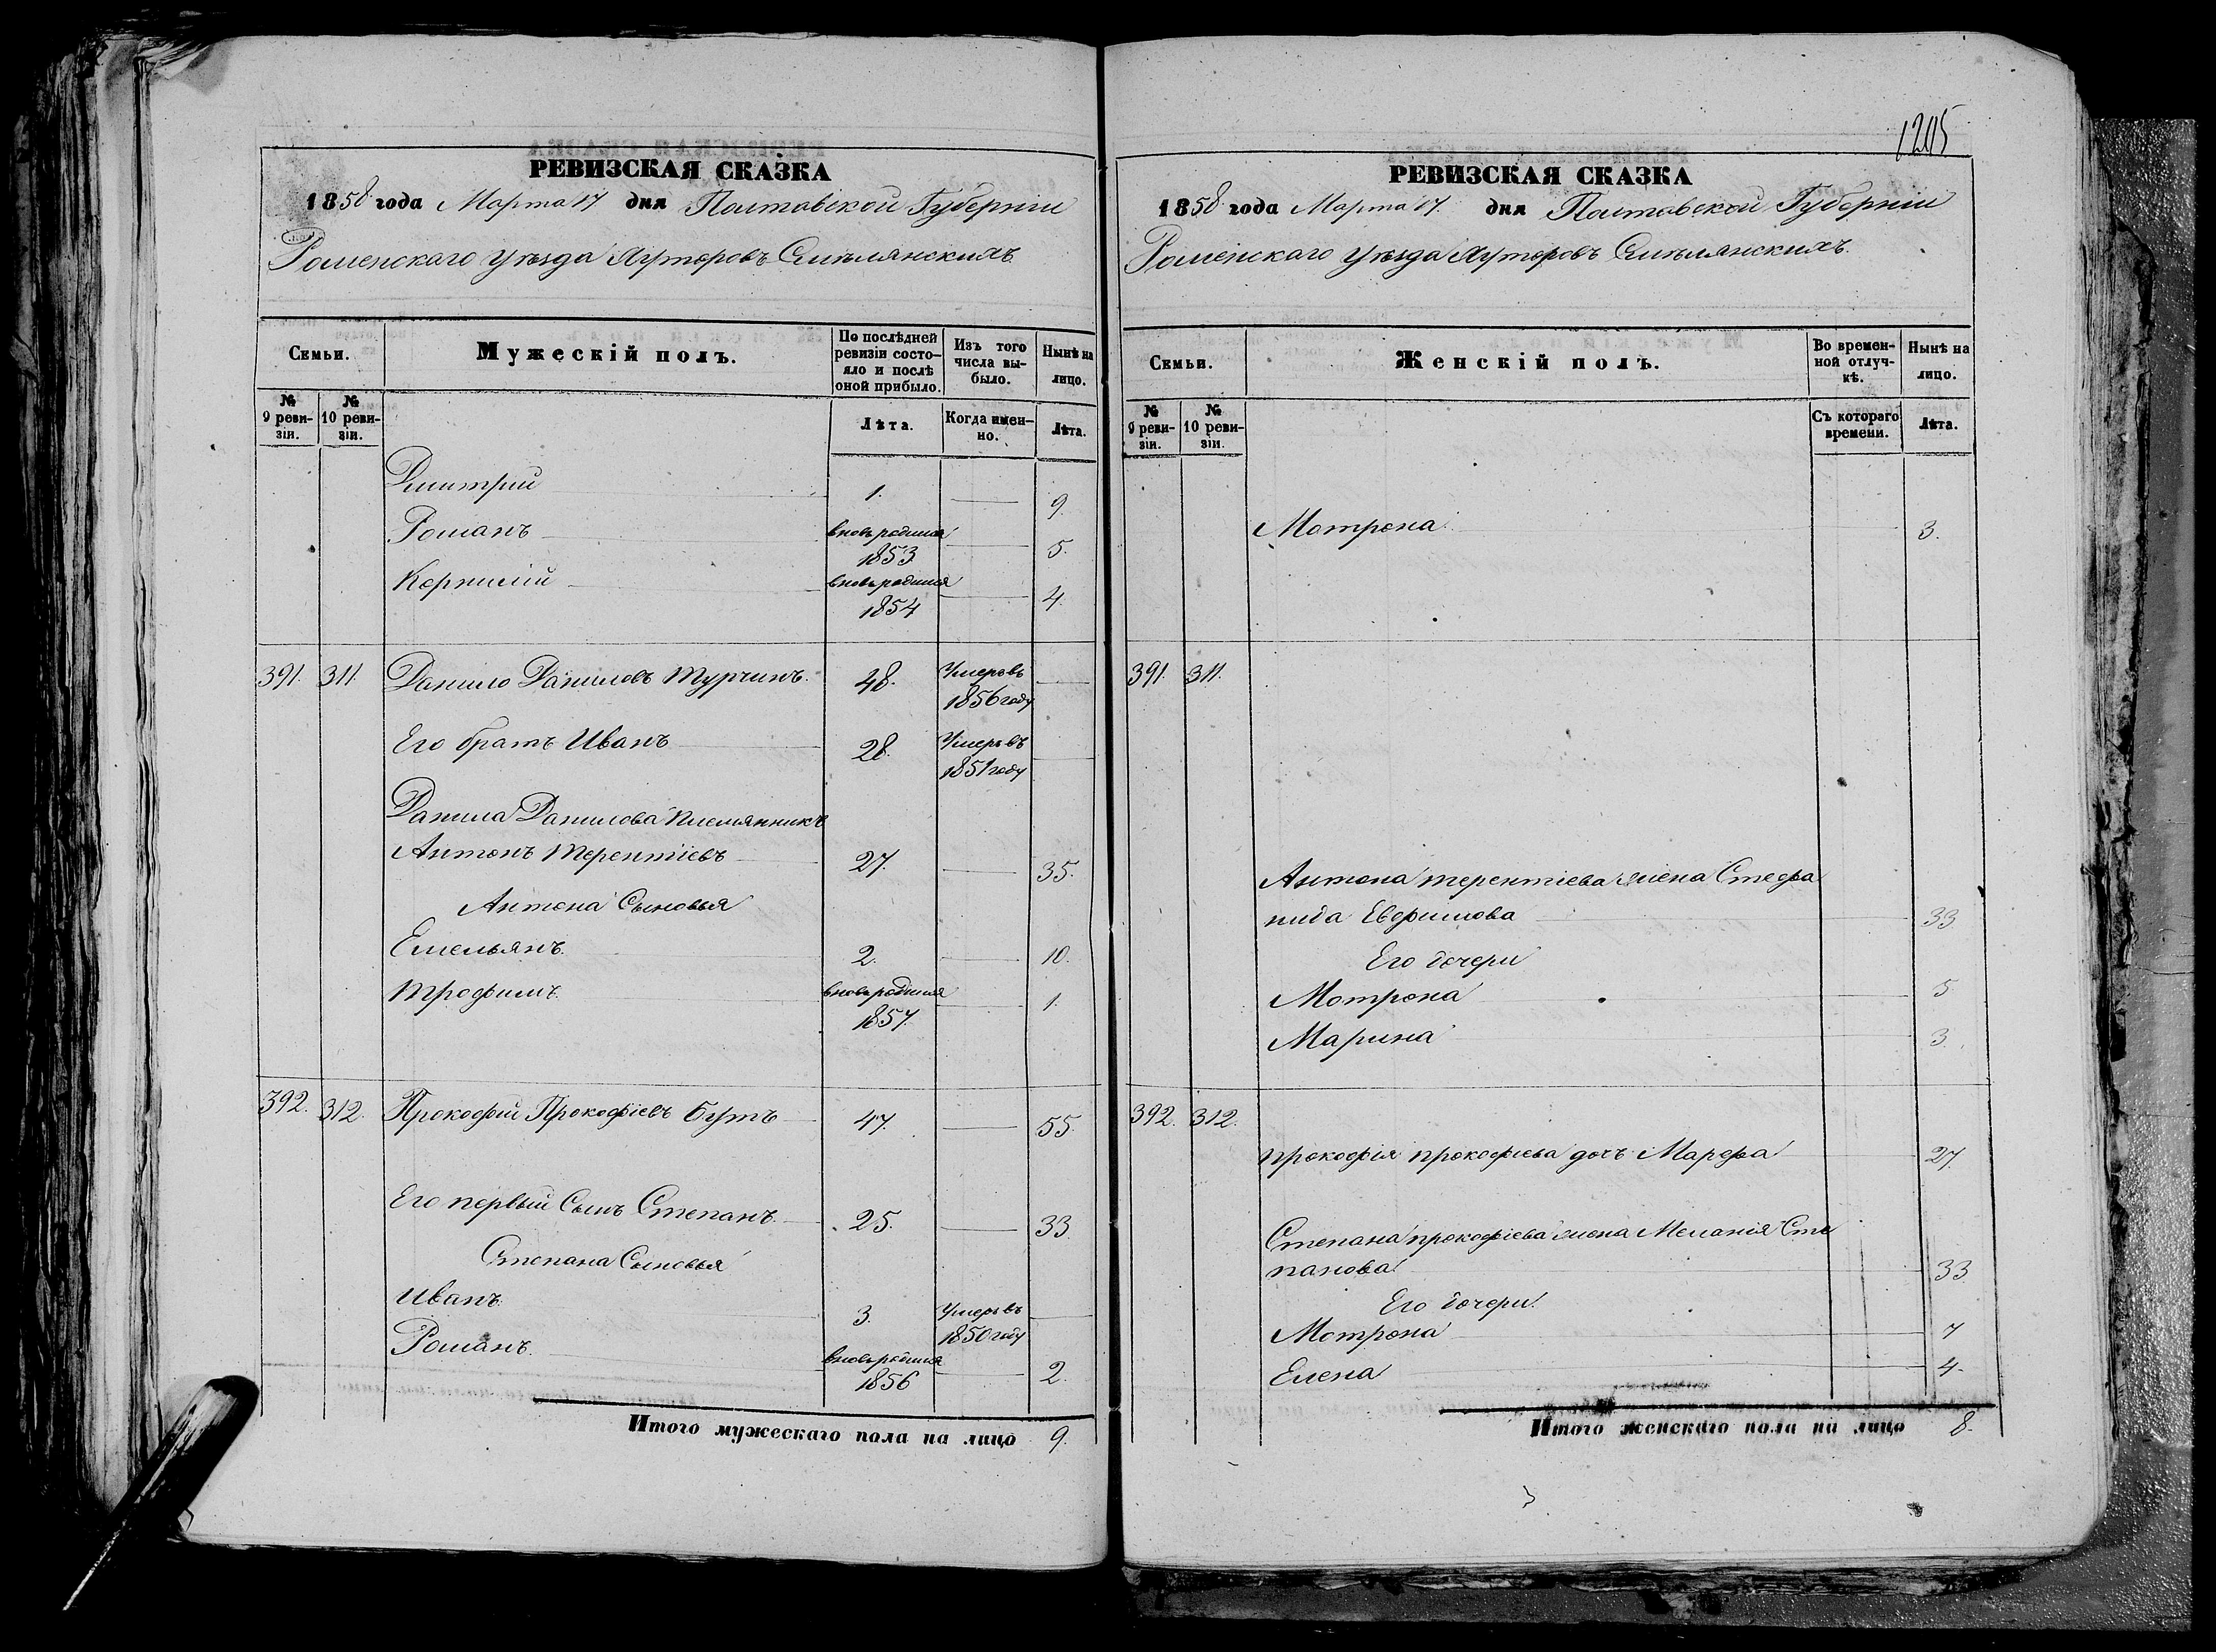 РЕВИЗСКАЯ СКАЗКА
1858 года Марта 17 дня Полтавской Губернiи
Роменскаго уѣзда Хуторовъ Смѣлянскихъ
Семьи. Мужескiй полъ. По послѣдней ревизiи состояло и послѣ оной прибыло. Изъ того числа выбыло. Нынѣ на лицо.
№ 9 ревизiи. № 10 ревизiи. Лѣта. Когда именно. Лѣта.
Дмитрiй 1. 9.
Романъ вновь родился 1853 5.
Корнилiй вновь родился 1854 4.
391. 311. Данило Даниловъ Турчинъ. 48. Умеръ въ 1856 году
Его братъ Иванъ 28. Умеръ въ 1851 году
Данила Данилова племянникъ
Антонъ Терентiевъ 27. 35.
Антона Сыновья
Емельянъ 2. 10.
Трофимъ вновь родился 1857. 1.
392. 312. Прокофiй Прокофiевъ Бутъ 47. 55.
Его первый Сынъ Степанъ 25. 33
Степана Сыновья
Иванъ 3. Умеръ въ 1850 году
Романъ. вновь родился 1856 2.
Итого мужескаго пола на лицо 9.
1205
РЕВИЗСКАЯ СКАЗКА
1858 года Марта 17. дня Полтавской Губернiи
Роменскаго уѣзда Хуторовъ Смѣлянскихъ.
Семьи. Женскiй полъ. Во временной отлучкѣ. Нынѣ на лицо.
№ 9 ревизiи. № 10 ревизiи. Съ котораго времени. Лѣта.
Мотрона 3.
391. 311.
Антона Терентiева жена Стефа
нида Евфимова 33
Его дочери
Мотрона 5
Марина 3.
392. 312.
Прокофiя Прокофiева дочь Марфа 27.
Степана Прокофiева жена Меланiя Сте
панова 33
Его дочери.
Мотрона 7
Елена 4.
Итого женскаго пола на лицо 8.